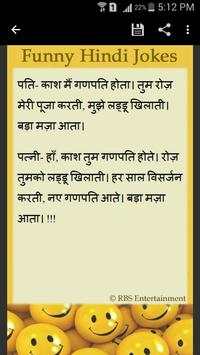 5:12 PM
Funny Hindi Jokes
पति- काश मैं गणपति होता। तुम रोज़
मेरी पूजा करती, मुझे लड्डू खिलाती।
बडा मज़ा आता।
पत्नी- हाँ, काश तुम गणपति होते। रोज़
तुमको लड्डू खिलाती। हर साल विसर्जन
करती, नए गणपति आते। बडा मज़ा
आता। !!!
© RBS Entertainment